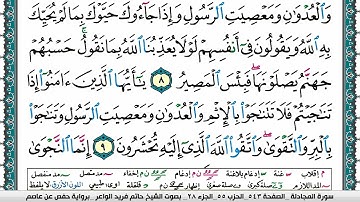 وَٱلْعُدْوَٰنِ وَمَعْصِيَتِ ٱلرَّسُولِ وَإِذَا جَآءُوكَ حَيَّوْكَ بِمَا لَمْ يُحَيِّكَ
بِهِ ٱللَّهُ وَيَقُولُونَ فِىٓ أَنفُسِهِمْ لَوْلَا يُعَذِّبُنَا ٱللَّهُ بِمَا نَقُولُ ۚ حَسْبُهُمْ
جَهَنَّمُ يَصْلَوْنَهَا ۖ فَبِئْسَ ٱلْمَصِيرُ ٨ يَٰٓأَيُّهَا ٱلَّذِينَ ءَامَنُوٓا۟ إِذَا
تَنَٰجَيْتُمْ فَلَا تَتَنَٰجَوْا۟ بِٱلْإِثْمِ وَٱلْعُدْوَٰنِ وَمَعْصِيَتِ ٱلرَّسُولِ وَتَنَٰجَوْا۟
بِٱلْبِرِّ وَٱلتَّقْوَىٰ ۖ وَٱتَّقُوا۟ ٱللَّهَ ٱلَّذِىٓ إِلَيْهِ تُحْشَرُونَ ٩ إِنَّمَا ٱلنَّجْوَىٰ
سورة المجادلة - الصفحة ٥٤٣ الحزب ٥٥ الجزء ٢٨ - بصوت الشيخ حاتم فريد الواعر - برواية حفص عن عاصم